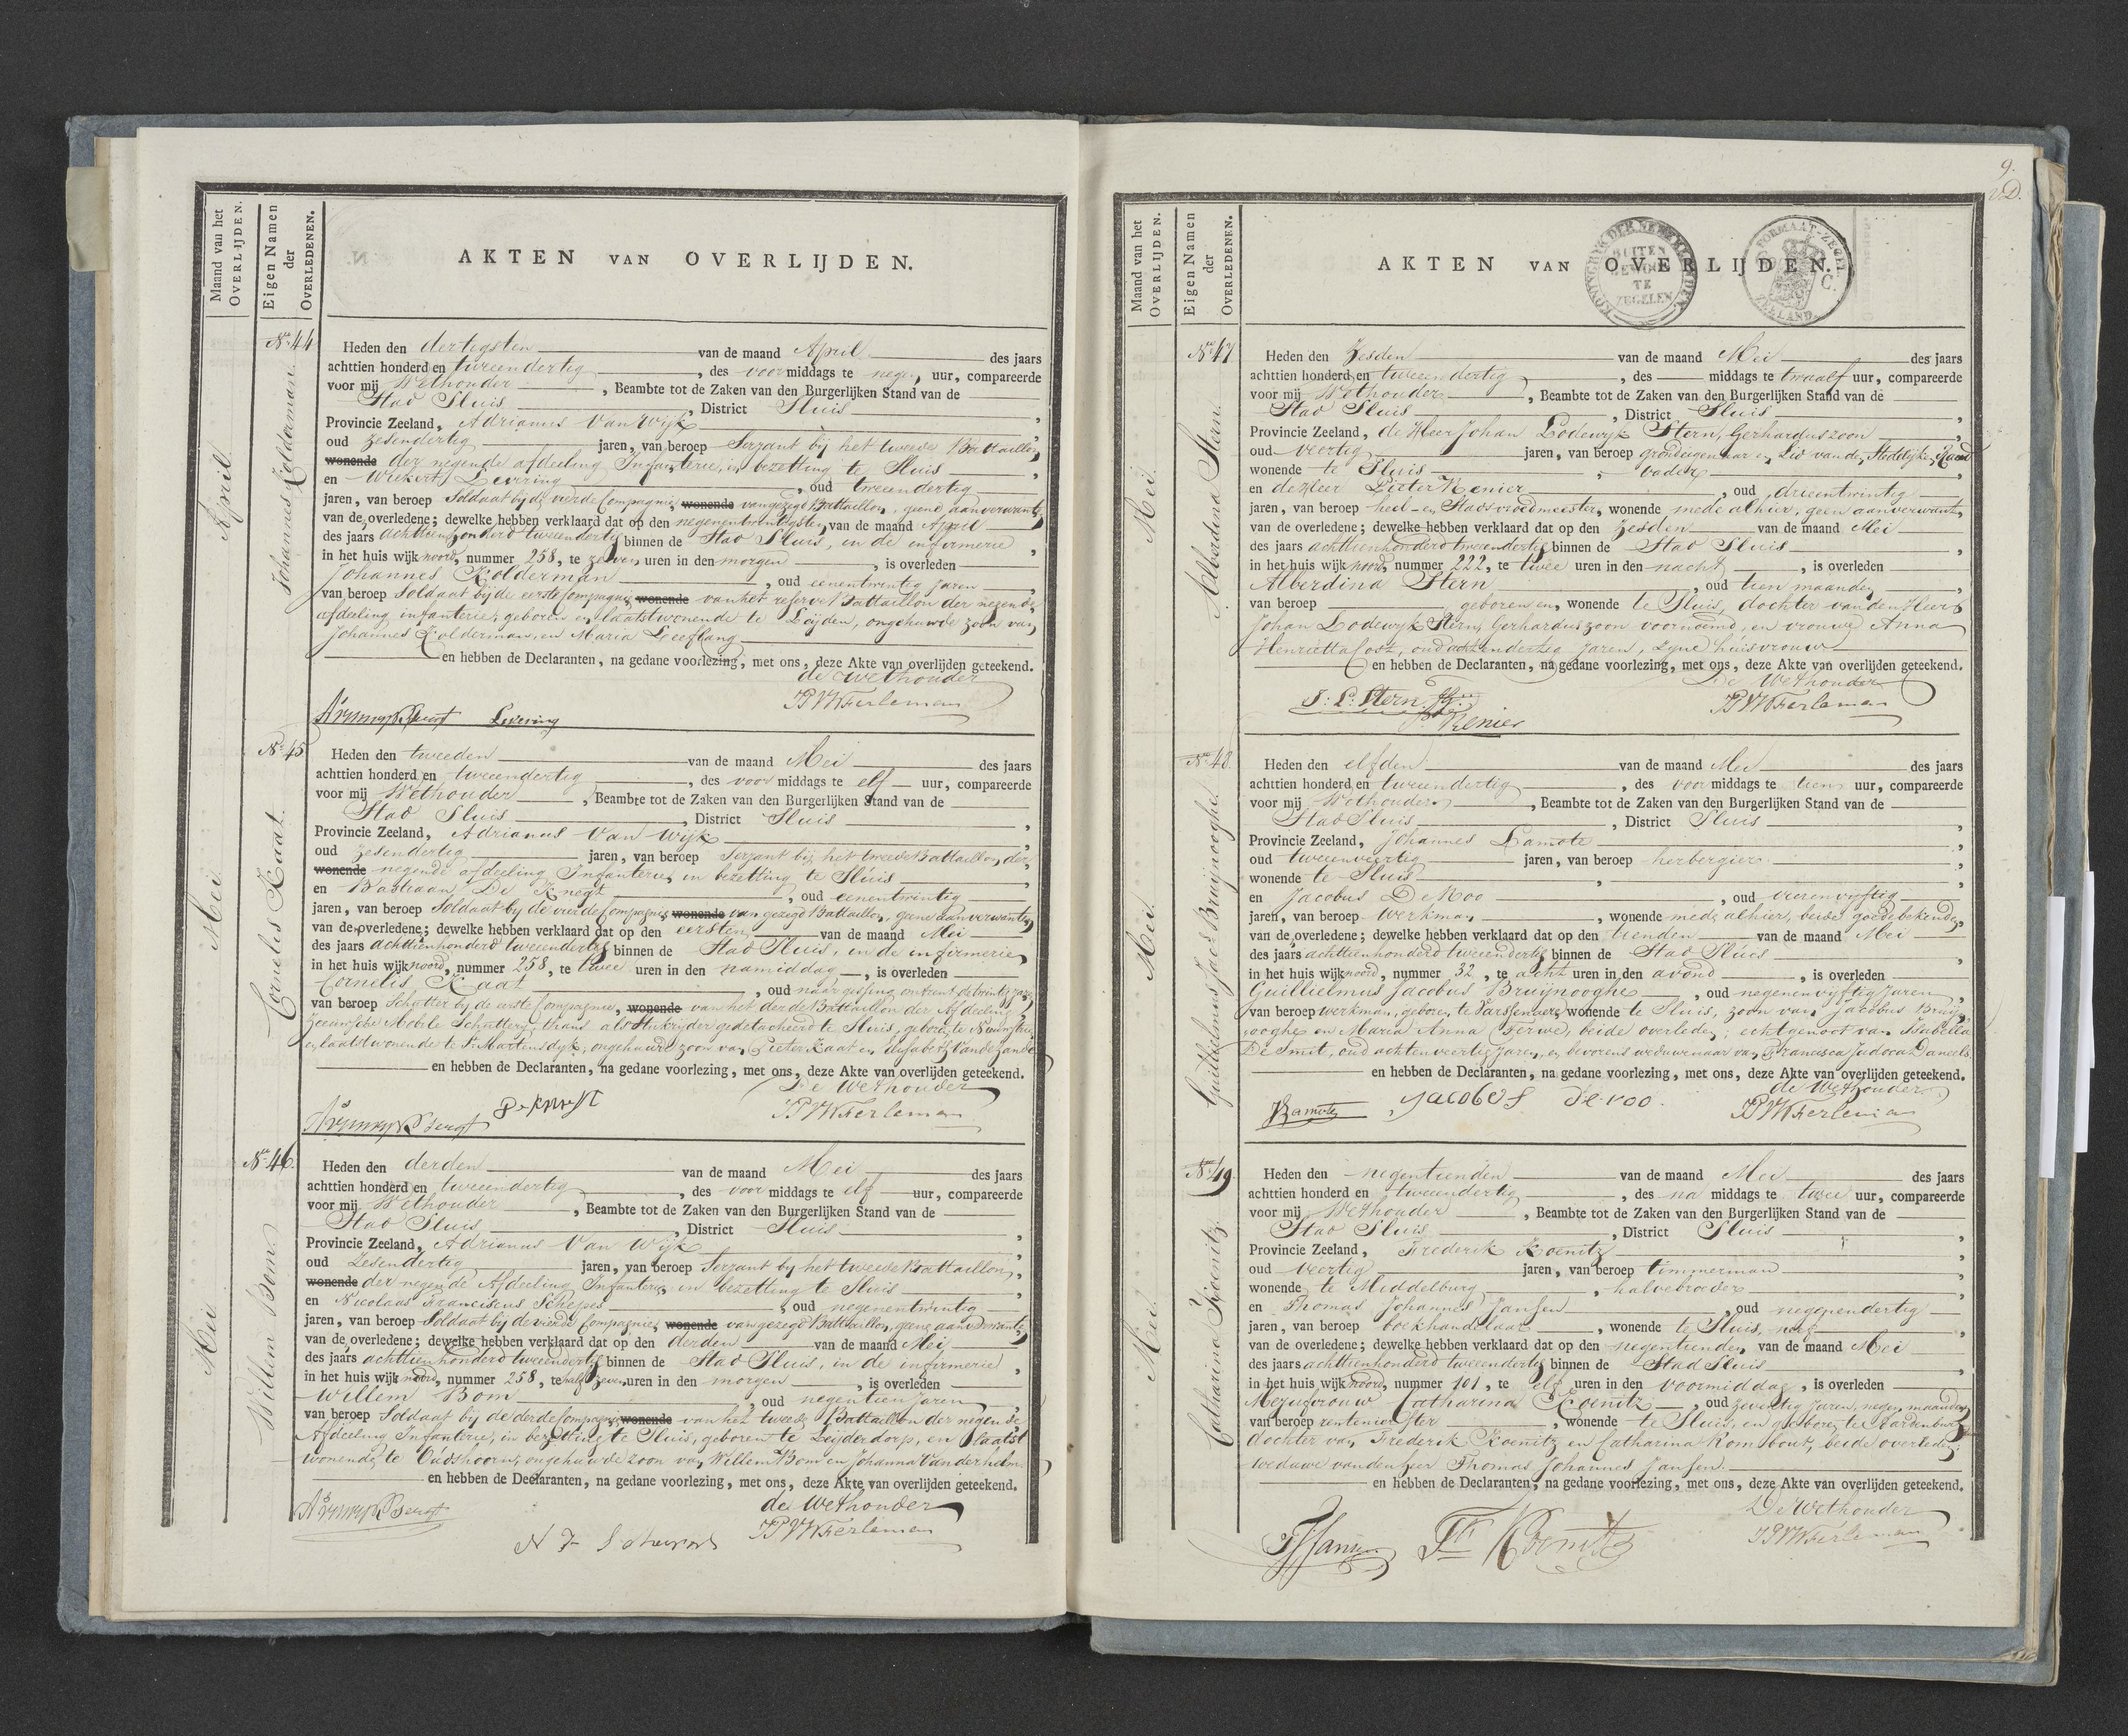 Maand van het
OVERLIJDEN.
Eigen Namen
der
OVERLEDENEN.
AKTEN VAN OVERLIJDEN.
April
Johannes Kolderman.
No. 44
Heden den dertigsten van de maand April des jaars
achttien honderd en tweeendertig, des voormiddags te negen uur, compareerde
voor mij Wethouder, Beambte tot de Zaken van den Burgerlijken Stand van de
Stad Sluis, District Sluis,
Provincie Zeeland, Adrianus Van Wijk,
oud zesendertig jaren, van beroep Serzant bij het tweede Battaillon,
wonende der negende afdeeling Infanterie, in bezetting te Sluis,
en Wiekert Levering, oud tweendertig
jaren, van beroep Soldaat bij de vierde Compagnie, wonende van gezegd Battaillon, geene aanverwanten
van de overledene; dewelke hebben verklaard dat op den negenentwintigsten van de maand April
des jaars achttienhonderd tweeendertig binnen de Stad Sluis, in de infirmerie,
in het huis wijk noord, nummer 258, te zeven uren in den morgen, is overleden
Johannes Kolderman, oud eenentwintig jaren,
van beroep Soldaat bij de eerste Compagnie, wonende van het reserve Battaillon der negende
afdeeling infanterie, geboren en laatst wonende te Leijden, ongehuwde zoon van
Johannes Kolderman, en Maria Leeflang
en hebben de Declaranten, na gedane voorlezing, met ons, deze Akte van overlijden geteekend.
de Wethouder
Levering
Mei
Cornelis Kaat.
No. 45
Heden den tweeden van de maand Mei des jaars
achttien honderd en tweeendertig, des voor middags te elf uur, compareerde
voor mij Wethouder, Beambte tot de Zaken van den Burgerlijken Stand van de
Stad Sluis, District Sluis,
Provincie Zeeland, Adrianus Van Wijk,
oud zesendertig jaren, van beroep Serzant bij het tweede Battaillon der,
wonende negende afdeeling Infanterie, in bezetting te Sluis,
en Bastiaan De Knegt, oud eenentwintig
jaren, van beroep Soldaat by de vierde Compagnie wonende van gezegd Battaillon, geene aanverwanten
van de overledene; dewelke hebben verklaard dat op den eersten van de maand Mei
des jaars achttienhonderd tweeendertig binnen de Stad Sluis, in de infirmerie,
in het huis wijk noord, nummer 258, te twee uren in den namiddag, is overleden
Cornelis Kaat, oud naar gissing omtrent de twintig jaren,
van beroep Schutter by de eerste Compagnie, wonende van het derde Battaillon der Afdeeling
Zeeuwsche Mobile Schuttery, thans als Stukrijder gedetacheerd te Sluis, geboren te
en laatst wonende te St. Martensdyk, ongehuwde zoon van Pieter Kaat en Elisabeth Vande Zande
en hebben de Declaranten, na gedane voorlezing, met ons, deze Akte van overlijden geteekend.
De Wethouder
Mei
Willem Bom.
No. 46.
Heden den derden van de maand Mei des jaars
achttien honderd en tweeendertig, des voor middags te elf uur, compareerde
voor mij Wethouder, Beambte tot de Zaken van den Burgerlijken Stand van de
Stad Sluis, District Sluis,
Provincie Zeeland, Adrianus Van Wijk,
oud Zesendertig jaren, van beroep Serzant by het tweede Battaillon,
wonende der negende Afdeeling Infanterie, in bezetting te Sluis,
en Nicolaas Franciscus, oud negenentwintig
jaren, van beroep Soldaat by de vierde Compagnie, wonende van gezegd Battaillon, geene aanverwanten
van de overledene; dewelke hebben verklaard dat op den derden van de maand Mei
des jaars achttienhonderd tweeendertig binnen de Stad Sluis, in de infirmerie,
in het huis wijk noord, nummer 258, te half zeven uren in den morgen, is overleden
Willem Bom, oud negentien jaren,
van beroep Soldaat bij de derde Compagnie wonende van het tweede Battaillon der negende
Afdeeling Infanterie, in bezetting te Sluis, geboren te Leijderdorp, en laatst
wonende te Oudshoorn, ongehuwde zoon van Willem Bom en Johanna Van der
en hebben de Declaranten, na gedane voorlezing, met ons, deze Akte van overlijden geteekend.
de Wethouder
9.
Maand van het
OVERLIJDEN.
Eigen Namen
der
OVERLEDENEN.
AKTEN VAN OVERLIJDEN.
KONINGRYK DER NEDERLANDEN
BUITEN
GEWOON
TE
ZEGELEN
FORMAAT-ZEGEL
C.
ZEELAND.
Mei.
Alberdina Stern.
No. 47
Heden den Zesden van de maand Mei des jaars
achttien honderd en tweeendertig, des middags te twaalf uur, compareerde
voor mij Wethouder, Beambte tot de Zaken van den Burgerlijken Stand van de
Stad Sluis, District Sluis,
Provincie Zeeland, de Heer Johan Lodewyk Stern, Gerhardus zoon,
oud veertig jaren, van beroep grondeigenaar en Lid van de Stedelyke Raad
wonende te Sluis, vader,
en de Heer Pieter Renier, oud drieentwintig
jaren, van beroep heel- en Stads vroedmeester, wonende mede alhier, geen aanverwant,
van de overledene; dewelke hebben verklaard dat op den Zesden van de maand Mei
des jaars achttienhonderd tweeendertig binnen de Stad Sluis,
in het huis wijk noord, nummer 222, te twee uren in den nacht, is overleden
Alberdina Stern, oud tien maanden,
van beroep geboren en, wonende te Sluis, dochter van den Heer
Johan Lodewyk Stern, Gerhardus zoon voornoemd, en vrouwe Anna
Henrietta Cost, oud achtendertig jaren, zyne huisvrouw
en hebben de Declaranten, na gedane voorlezing, met ons, deze Akte van overlijden geteekend.
De Wethouder
J: L: Stern
P. Renier
Mei.
Guillielmus Jac. Bruijnooghe.
No. 48.
Heden den elfden van de maand Mei des jaars
achttien honderd en tweeendertig, des voor middags te tien uur, compareerde
voor mij Wethouder, Beambte tot de Zaken van den Burgerlijken Stand van de
Stad Sluis, District Sluis,
Provincie Zeeland, Johannes Lamote,
oud tweeenveertig jaren, van beroep herbergier,
wonende te Sluis,
en Jacobus De Voo, oud vierenvyftig
jaren, van beroep werkman, wonende mede alhier, beide goede bekenden,
van de overledene; dewelke hebben verklaard dat op den tienden van de maand Mei
des jaars achttienhonderd tweeendertig binnen de Stad Sluis,
in het huis wijk noord, nummer 32, te acht uren in den avond, is overleden
Guillielmus Jacobus Bruijnooghe, oud negenenvyftig jaren,
van beroep werkman, geboren te Varssenare, wonende te Sluis, zoon van Jacobus Bruijn
ooghe en Maria Anna, beide overleden, echtgenoot van Isabella
De Smit, oud achtenveertig jaren, en bevorens weduwenaar van Francisca Judoca Daneels.
en hebben de Declaranten, na gedane voorlezing, met ons, deze Akte van overlijden geteekend.
de Wethouder
Jacobus de voo.
Mei.
Catharina Koenitz.
No. 49
Heden den negentienden van de maand Mei des jaars
achttien honderd en tweeendertig, des na middags te twee uur, compareerde
voor mij Wethouder, Beambte tot de Zaken van den Burgerlijken Stand van de
Stad Sluis, District Sluis,
Provincie Zeeland, Frederik Koenitz,
oud veertig jaren, van beroep timmerman,
wonende te Middelburg, halvebroeder,
en Thomas Johannes Jansen, oud negenendertig
jaren, van beroep boekhandelaar, wonende te Sluis, neef,
van de overledene; dewelke hebben verklaard dat op den negentienden van de maand Mei
des jaars achttienhonderd tweeendertig binnen de Stad Sluis,
in het huis wijk noord, nummer 101, te elf uren in den voormiddag, is overleden
Mejufvrouw Catharina Koenitz, oud zeventig jaren, negen maanden
van beroep rentenierster, wonende te Sluis, en geboren te Aardenburg
dochter van Frederik Koenitz en Catharina Rombout, beide overleden,
weduwe van den heer Thomas Johannes Jansen.
en hebben de Declaranten, na gedane voorlezing, met ons, deze Akte van overlijden geteekend.
De Wethouder
TJJansen
Fk Koenitz